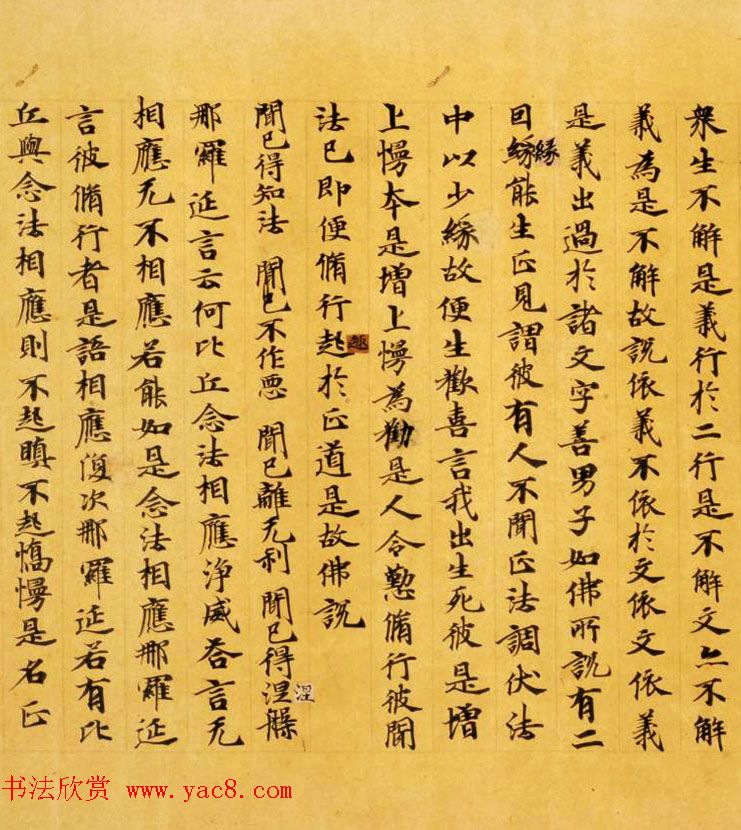 衆生不解是義行於二行是不解文亦不解
義為是不解故說依義不依於文依文依義
是義出過於諸文字善男子如佛所說有二
因緣能生正見謂彼有人不聞正法調伏法
中以少緣故便生歡喜言我出生死彼是增
上慢夲是增上慢為勸是人令懃脩行彼聞
法已即便脩行起於正道是故佛說
聞已得知法 聞已不作惡 聞已離无利 聞已得涅槃
那羅延言云何比丘念法相應淨威荅言无
相應无不相應若能如是念法相應那羅延
言彼脩行者是語相應復次那羅延若有比
丘與念法相應則不起瞋不起憍慢是名正
緣
趣
涅
书法欣赏 www.yac8.com